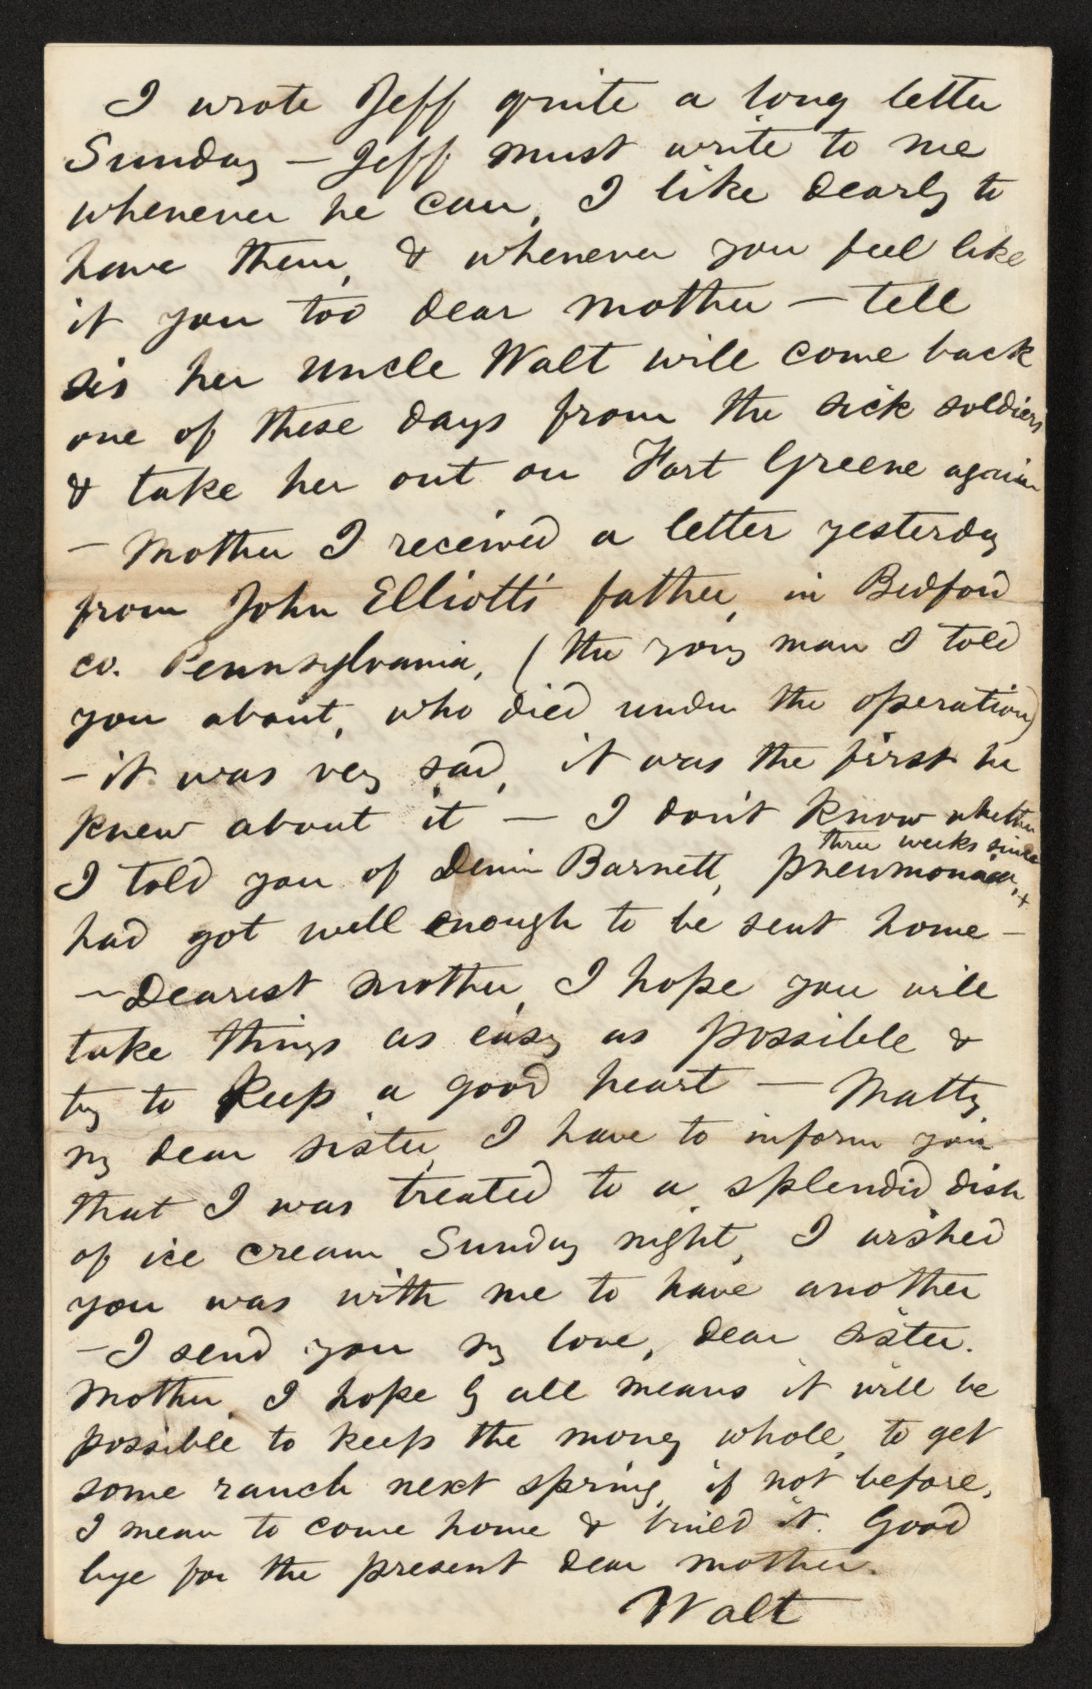 I wrote Jeff quite a long letter
Sunday — Jeff must write to me
whenever he can, I like dearly to
have them, & whenever you feel like
it you too dear mother — tell
sis her uncle Walt will come back
one of these days from the sick soldiers
& take her out on Fort Greene again
— Mother I received a letter yesterday
from John Elliott's father, in Bedford
co. Pennsylvania, (the young man I told
you about, who died under the operation)
— it was very sad, it was the first he
knew about it — I don't know whether
three weeks since
I told you of Dennis Barnett, pneumonia, &
had got well enough to be sent home —
— Dearest mother, I hope you will
take things as easy as possible &
try to keep a good heart — Matty,
my dear sister, I have to inform you
that I was treated to a splendid dish
of ice cream Sunday night, I wished
you was with me to have another
— I send you my love, dear sister.
Mother, I hope by all means it will be
possible to keep the money whole, to get
some ranch next spring, if not before,
I mean to come home & build it. Good
bye for the present dear mother.
Walt